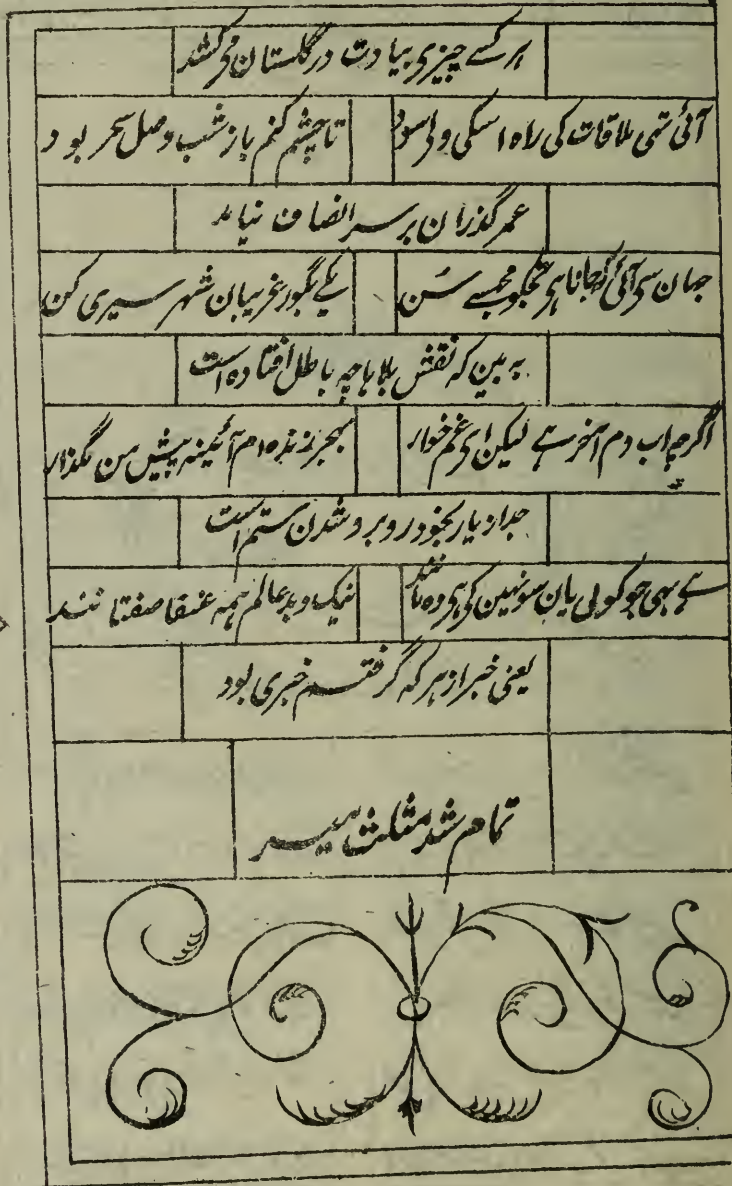 ہر کسے چیزی بیادت در گلستان می کشد
آئی تھی ملاقات کی راہ اسکی تا چشم کنم باز شب وصل سحر بود
عمر گذران بر سر انصاف نیامد
جہان سی آئی مجھسے سُن یکے بگور غریبان شہر سیری کن
بہ بین کہ نقش بلاہا چہ باطل افتادہ است
اگرچہ اب دم آخر ہے لیکن ای غم خوار بہجر زندہ ام آئینہ پیش من مگذار
جدا ز یار بخود روبرو شدن ستم است
سے بھی جو کوئی یان سو نہین کی وہ مانند نیک و بد عالم ہمہ عنقا صفتانند
یعنی خبر از ہر کہ گرفتم خبری بود
تمام شد مثلث میر